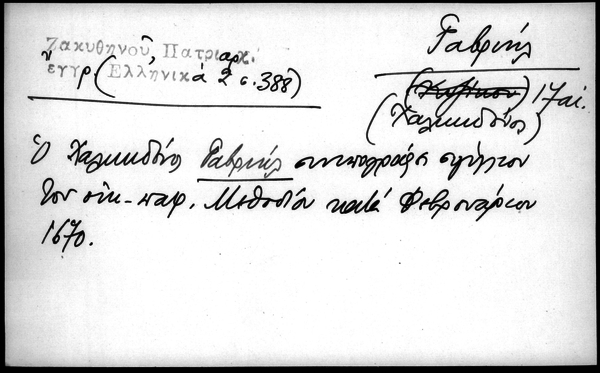 Ζακυθηνοῦ, Πατριαρχ.
ἔγγρ. (Ἑλληνικά 2 σ. 388)
Γαβριήλ
17 αἰ.
(Χαλκηδόνος)
Ὁ Χαλκηδόνος Γαβριήλ συνυπογράφει σιγίλλιον
τοῦ οἰκ. πατρ. Μεθοδίου κατά Φεβρουάριον
1670.